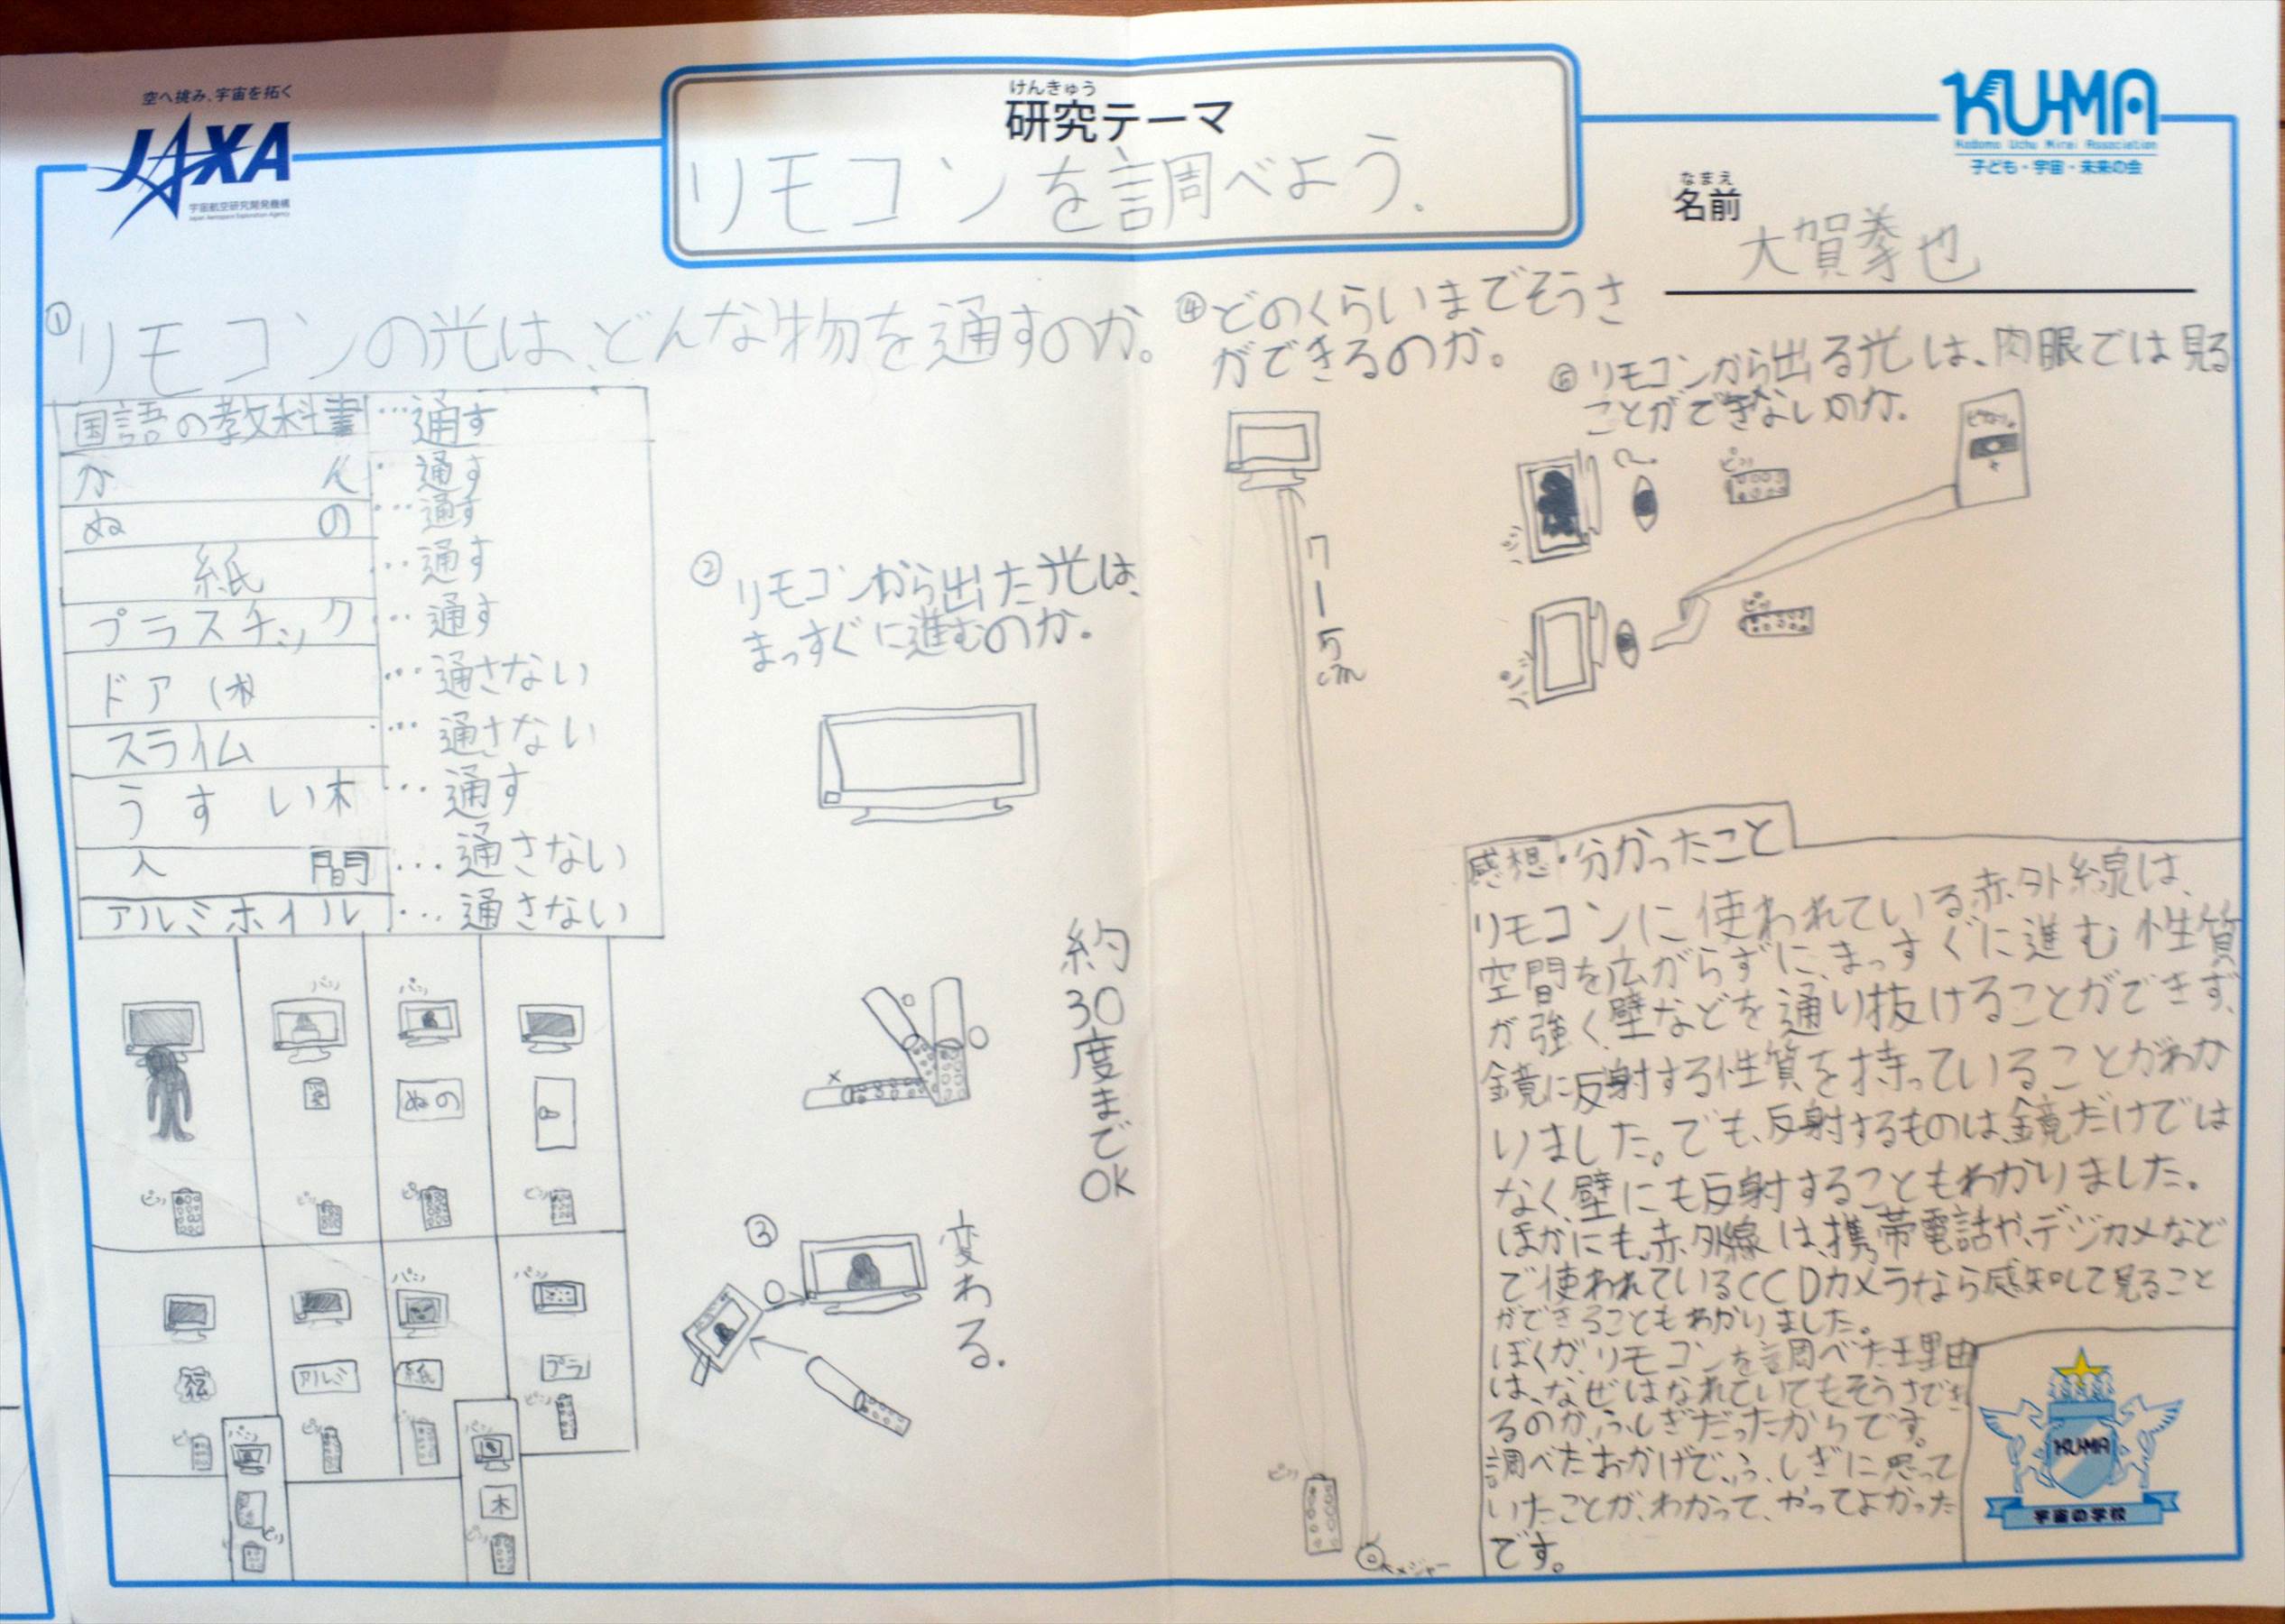 空へ挑み、宇宙を拓く
JAXA
宇宙航空研究開発機構
Japan Aerospace Exploration Agency
けんきゅう
研究テーマ
リモコンを調べよう.
KU-MA
Kodomo Uchu Mirai Association
子ども・宇宙・未来の会
なまえ
名前
大賀拳也
①リモコンの光は、どんな物を通すのか。
国語の教科書…通す
かん…通す
ぬの…通す
紙…通す
プラスチック…通す
ドア(木)…通さない
スライム…通さない
うすい木…通す
人間…通さない
アルミホイル…通さない
パッ
パッ
ぬの
ピッ
ピッ
ピッ
ピッ
パッ
パッ
アルミ
紙
プラ
ピッ
ピッ
ピッ
パッ
パッ
木
ピッ
ピッ
②リモコンから出た光は、
まっすぐに進むのか.
約30度までOK
③
変わる.
④どのくらいまでそうさ
ができるのか。
715cm
ピッ
メジャー
⑤リモコンから出る光は、肉眼では見る
ことができないのか.
ピッ
ピッ
感想・分かったこと
リモコンに使われている赤外線は、
空間を広がらずに、まっすぐに進む性質
が強く、壁などを通り抜けることができず、
鏡に反射する性質を持っていることがわか
りました。でも、反射するものは、鏡だけでは
なく、壁にも反射することもわかりました。
ほかにも、赤外線は、携帯電話や、デジカメなど
で使われているCCDカメラなら感知して見ること
ができることもわかりました。
ぼくが、リモコンを調べた理由
は、なぜはなれていてもそうさでき
るのか、ふしぎだったからです。
調べたおかげで、ふしぎに思って
いたことが、わかって、やってよかった
です。
KU-MA
宇宙の学校